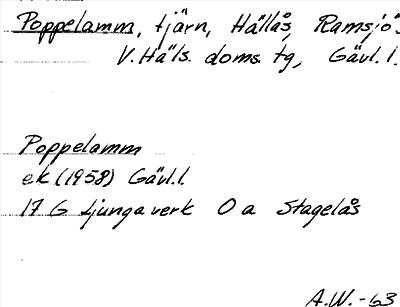 Poppelamm, tjärn, Hällås, Ramsjö s.
V. Häls. doms. tg, Gävl. l.
Poppelamm
ek (1958) Gävl. l.
17 G Ljungaverk 0 a Stagelås
A.W.-63